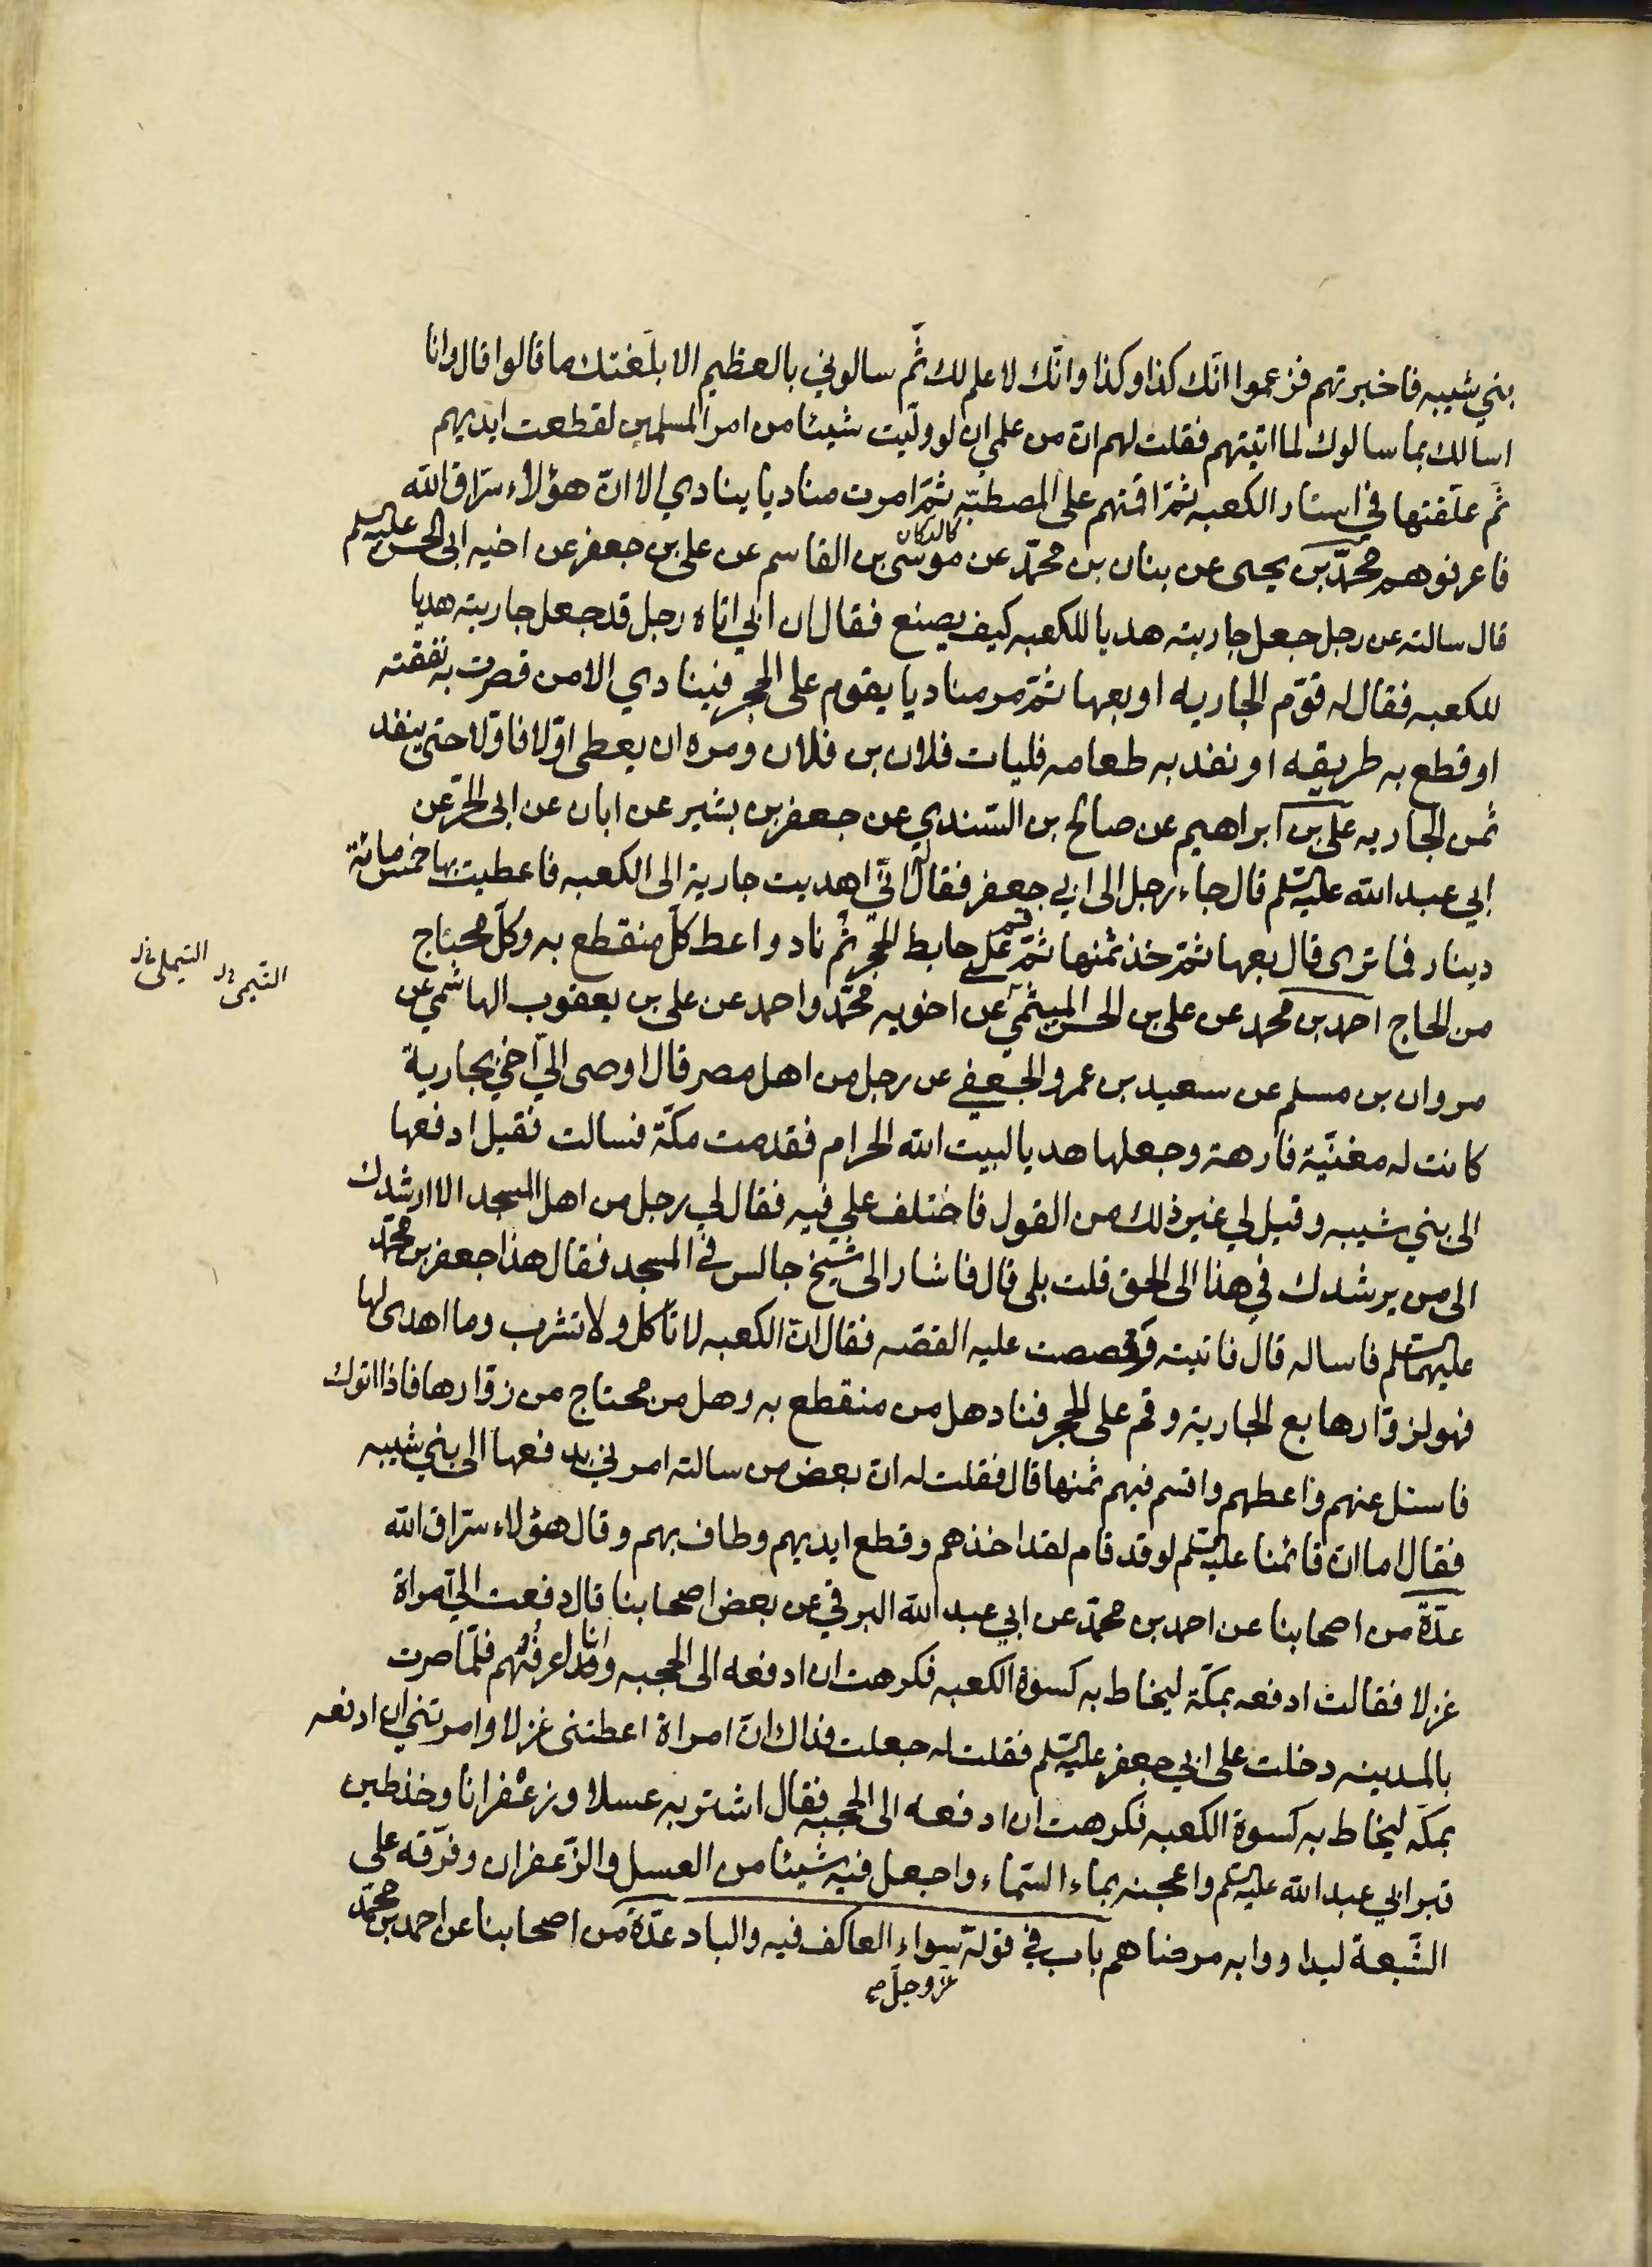 بني شيبه فاخبرتهم فزعموا انّك كذا وكذا وانّك لا علم لك ثمّ سالوني بالعظيم الا بلّغتك ما قالوا قال وانا
اسالك بما سالوك لما اتيتهم فقلت لهم ان من علمي ان لو ولّيت شيئا من امر المسلمين لقطعت ايديهم
ثمّ علّقتها في استار الكعبه ثمّ اقمتهم على المصطبّه ثمّ امرت مناديا ينادي الا انّ هؤلاء سرّاق الله
كالدكان
فاعرفوهم محمّد بن يحيى عن بنان بن محمّد عن موسى بن القاسم عن علي بن جعفر عن اخيه ابي الحسن عليه السلم
قال سالته عن رجل جعل جاريته هديا للكعبه كيف يصنع فقال ان ابي اتاه رجل قد جعل جاريته هديا
للكعبه فقال له قوّم الجاريه او بعها ثمّ مر مناديا يقوم على الحجر فينادي الا من قصرت به نفقته
او قطع به طريقه او نفد به طعامه فليات فلان بن فلان ومره ان يعطى اوّلا فاوّلا حتى ينفد
ثمن الجاريه علي بن ابراهيم عن صالح بن السّندي عن جعفر بن بشير عن ابان عن ابي الحرّ عن
ابي عبد الله عليه السلم قال جاء رجل الى ابي جعفر فقال له انّي اهديت جارية الى الكعبه فاعطيت بها خمس مائة
دينار فما ترى قال بعها ثمّ خذ ثمنها ثمّ قم على حايط الحجر ثم ناد واعط كلّ منقطع به وكلّ محتاج
من الحاج احمد بن محمد عن علي بن الحسن الميثمي عن اخويه محمّد واحمد عن علي بن يعقوب الهاشمي عن
التيمي خ ل
التيملي خ ل
مروان بن مسلم عن سعيد بن عمرو الجعفي عن رجل من اهل مصر قال اوصى اليّ اخي بجارية
كانت له مغنّية فارهة وجعلها هديا لبيت الله الحرام فقدمت مكّة فسالت فقيل ادفعها
الى بني شيبه وقيل لي غير ذلك من القول فاختلف علي فيه فقال لي رجل من اهل المسجد الا ارشدك
الى من يرشدك في هذا الى الحق قلت بلى قال فاشار الى شيخ جالس في المسجد فقال هذا جعفر بن محمّد
عليهما السلم فاساله قال فاتيته فسالته وقصصت عليه القصّه فقال انّ الكعبه لا تاكل ولا تشرب وما اهدى لها
فهو لزوّارها بع الجارية وقم على الحجر فناد هل من منقطع به وهل من محتاج من زوّارها فاذا اتوك
فاسئل عنهم واعطهم واقسم فيهم ثمنها قال فقلت له ان بعض من سالته امرني بدفعها الى بني شيبه
فقال اما ان قائمنا عليه السلم لو قد قام لقد اخذهم وقطع ايديهم وطاف بهم وقال هؤلاء سرّاق الله
عدّة من اصحابنا عن احمد بن محمّد عن ابي عبد الله البرقي عن بعض اصحابنا قال دفعت اليّ امراة
غزلا فقالت ادفعه بمكّة ليخاط به كسوة الكعبه فكرهت ان ادفعه الى الحجبه وانا اعرفهم فلمّا صرت
بالمدينه دخلت على ابي جعفر عليه السلم فقلت له جعلت فداك ان امراة اعطتني غزلا وامرتني ان ادفعه
بمكّه ليخاط به كسوة الكعبه فكرهت ان ادفعه الى الحجبه فقال اشتر به عسلا وزعفرانا وخذ طين
قبر ابي عبد الله عليه السلم واعجنه بماء السّماء واجعل فيه شيئا من العسل والزّعفران وفرّقه على
الشّيعة ليداووا به مرضاهم باب في قوله سواء العاكف فيه والباد عدّة من اصحابنا عن احمد بن محمّد
عزّ وجلّ